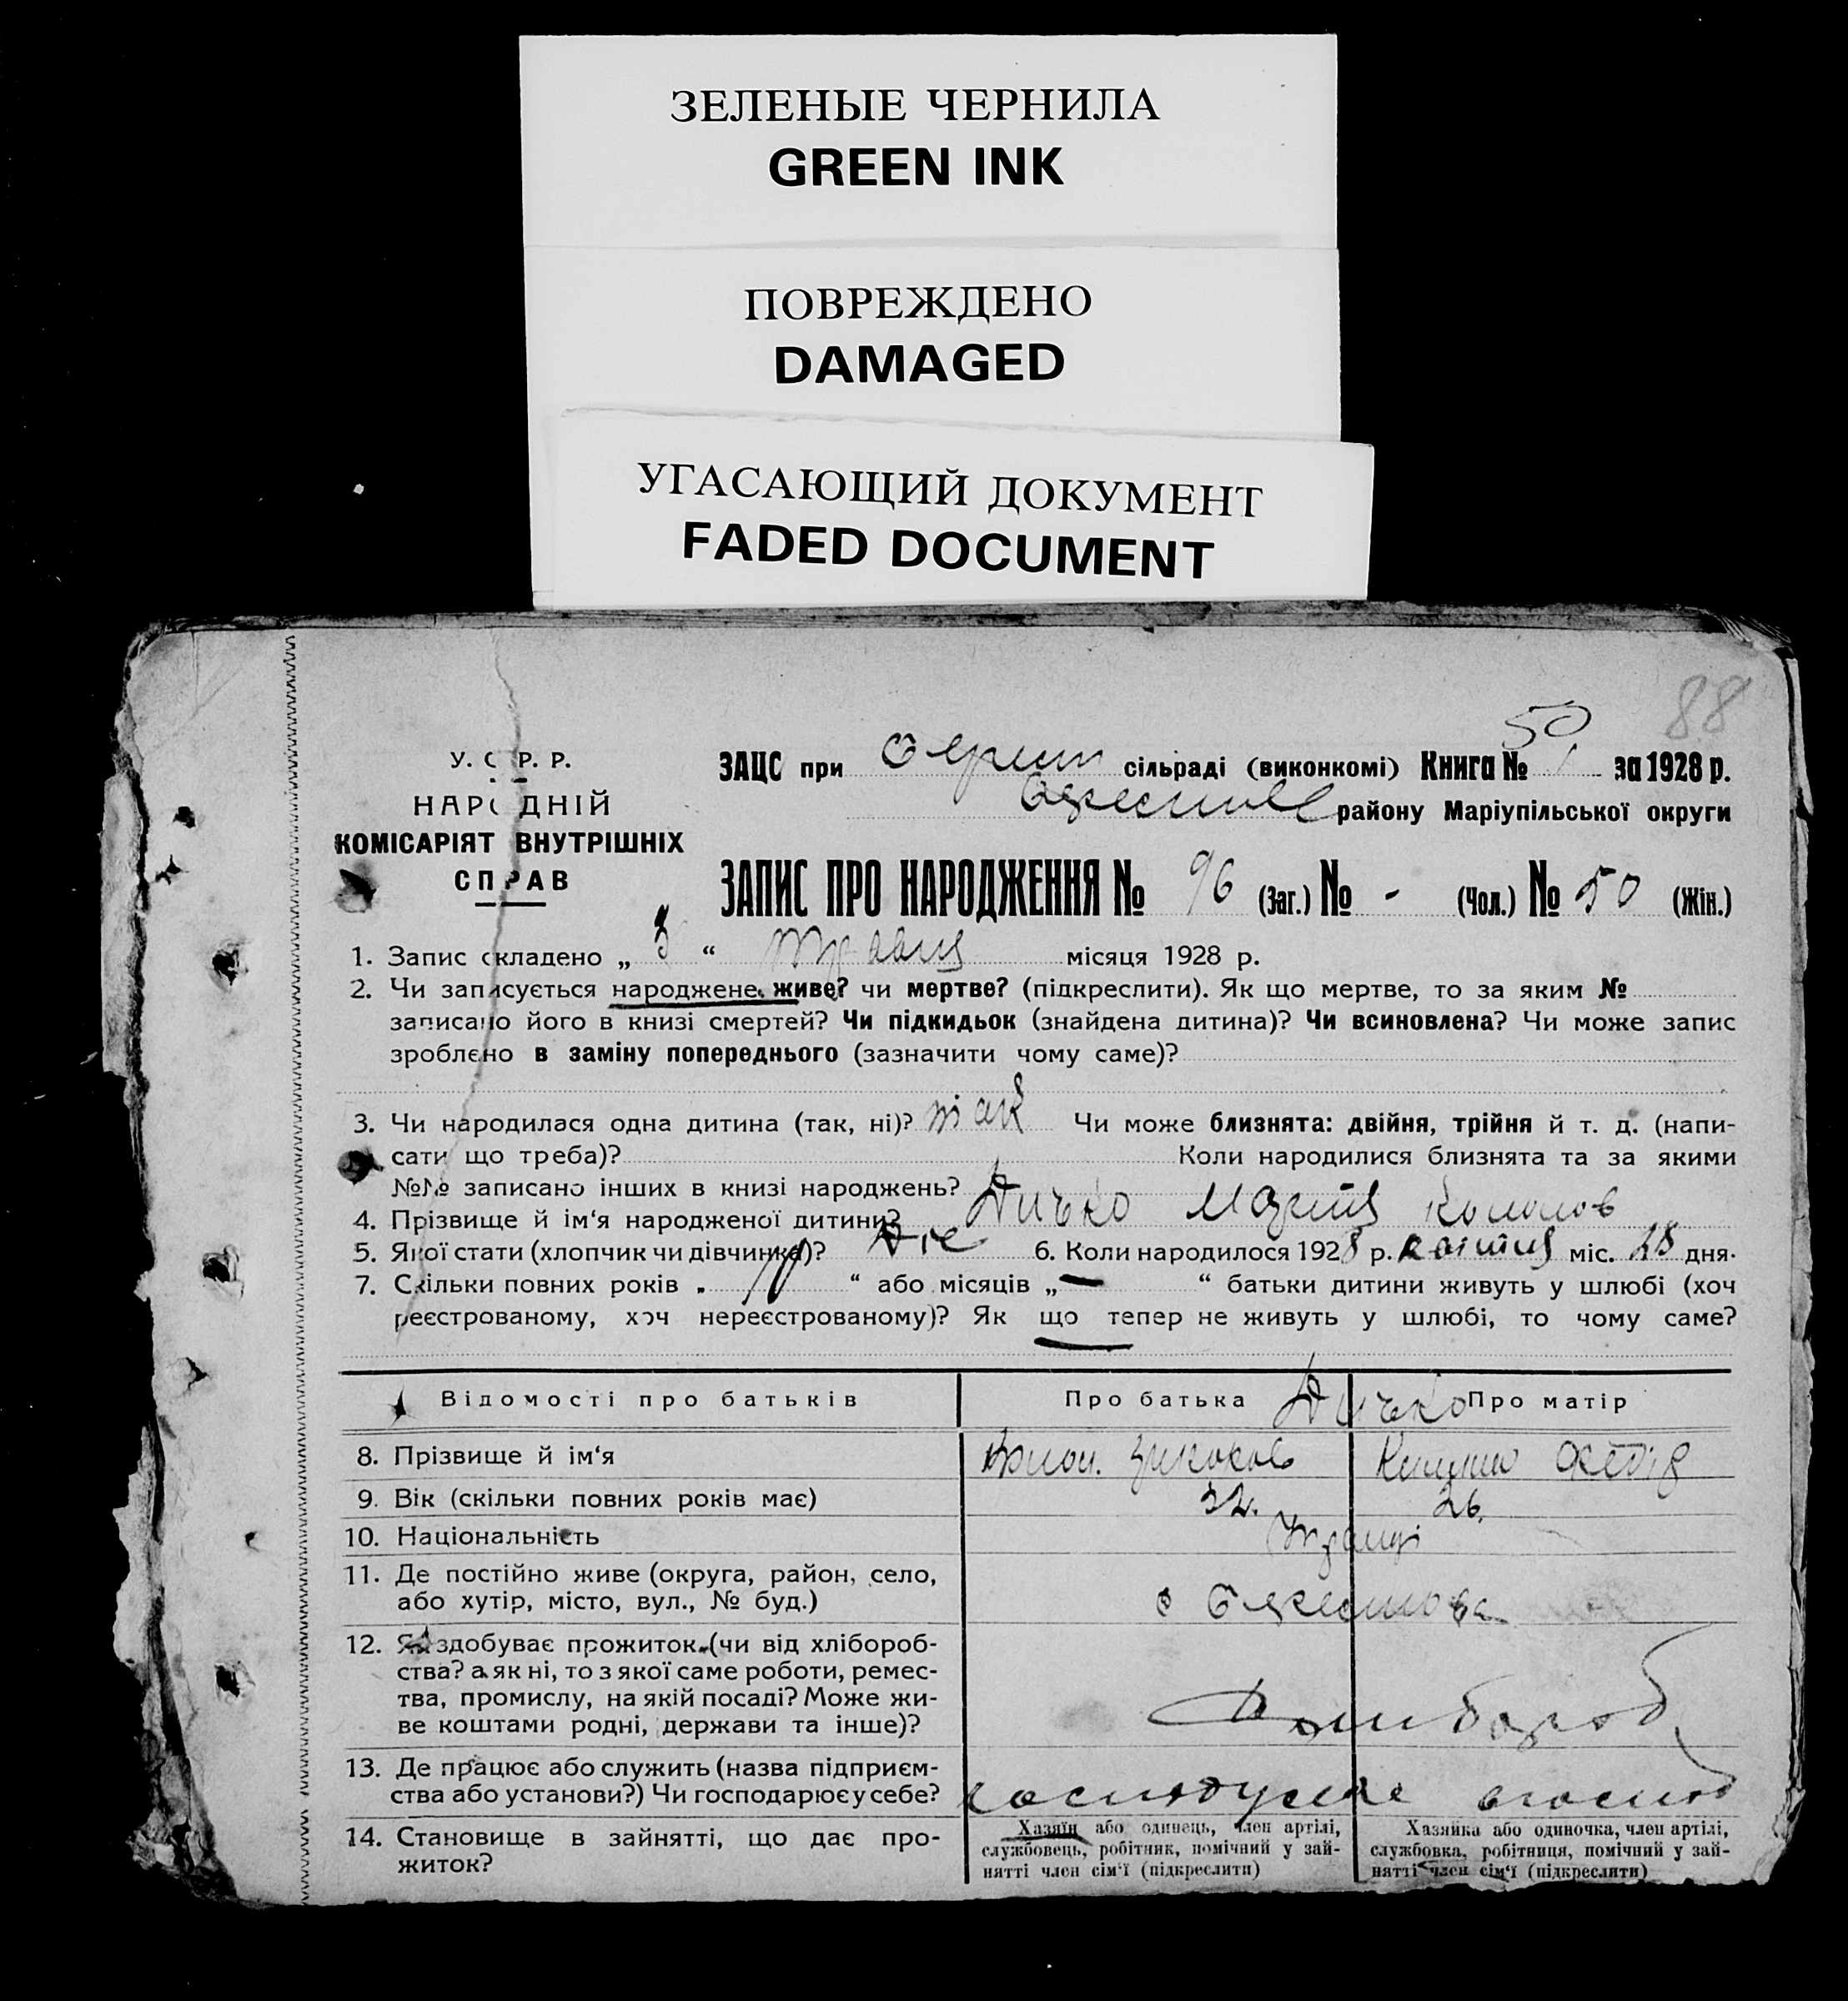 ЗЕЛЕНЫЕ ЧЕРНИЛА
GREEN INK
ПОВРЕЖДЕНО
DAMAGED
УГАСАЮЩИЙ ДОКУМЕНТ
FADED DOCUMENT
88
50
У. С. Р. Р.
НАРОДНІЙ
КОМІСАРІЯТ ВНУТРІШНІХ
СПРАВ
ЗАЦС при сільраді (виконкомі) Книга № за 1928 р.
району Маріупільської округи
ЗАПИС ПРО НАРОДЖЕННЯ № 96 (Заг.) № - (Чол.) № 50 (Жін.)
1. Запис складено „ 3 “ травня місяця 1928 р.
2. Чи записується народжене живе? чи мертве? (підкреслити). Як що мертве, то за яким №
записано його в книзі смертей? Чи підкидьок (знайдена дитина)? Чи всиновлена? Чи може запис
зроблено в заміну попереднього (зазначити чому саме)?
3. Чи народилася одна дитина (так, ні)? так Чи може близнята: двійня, трійня й т. д. (напи-
сати що треба)? Коли народилися близнята та за якими
№№ записано інших в книзі народжень?
4. Прізвище й ім‘я народженої дитини? Дичко Марія
5. Якої стати (хлопчик чи дівчинка)? Діе 6. Коли народилося 1928 р. квітня міс. 28 дня.
7. Скільки повних років „ “ або місяців „ — “ батьки дитини живуть у шлюбі (хоч
реєстрованому, хоч нереєстрованому)? Як що тепер не живуть у шлюбі, то чому саме?
Відомості про батьків Про батька Дичко Про матір
8. Прізвище й ім‘я
9. Вік (скільки повних років має) 32. 26.
10. Національність
11. Де постійно живе (округа, район, село,
або хутір, місто, вул., № буд.)
12. Як здобуває прожиток (чи від хлібороб-
ства? а як ні, то з якої саме роботи, ремес-
тва, промислу, на якій посаді? Може жи-
ве коштами родні, держави та інше)?
13. Де працює або служить (назва підприєм-
ства або установи?) Чи господарює у себе?
14. Становище в зайнятті, що дає про-
житок?
Хазяїн або одинець, член артілі,
службовець, робітник, помічний у зай-
нятті член сім‘ї (підкреслити)
Хазяйка або одиночка, член артілі,
службовка, робітниця, помічний у зай-
нятті член сім‘ї (підкреслити)